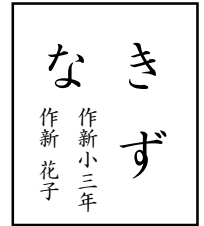 きず
な
作新小三年
作新 花子